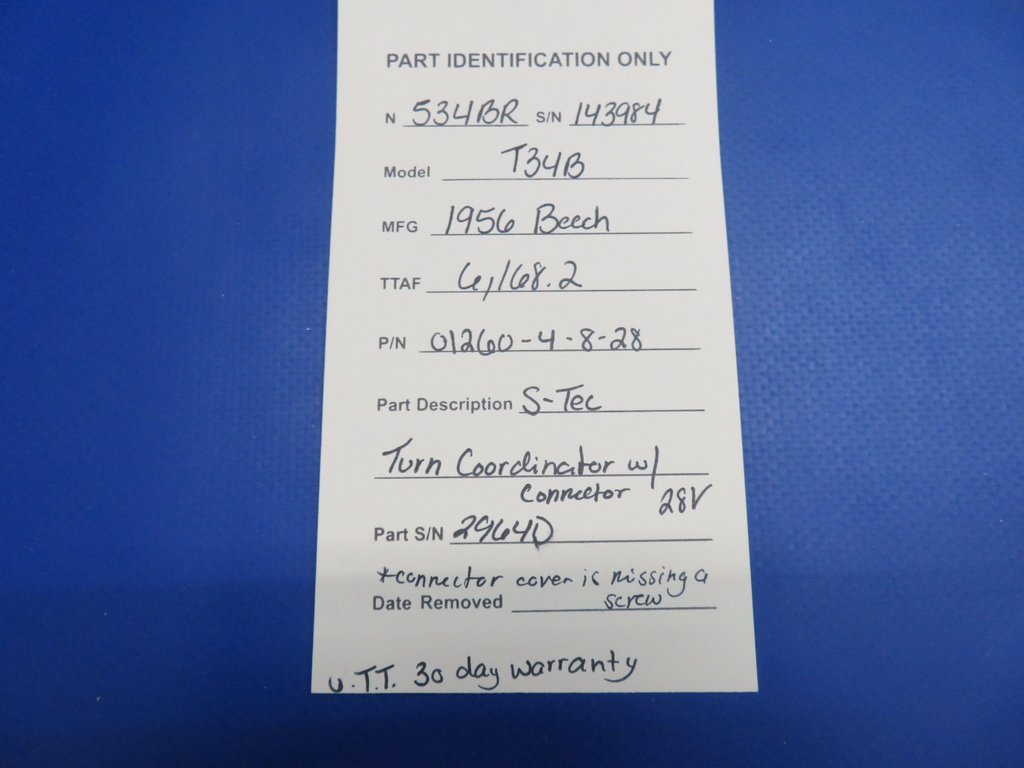 PART IDENTIFICATION ONLY
N 534BR S/N 143984
Model T34B
MFG 1956 Beech
TTAF 6,168.2
P/N 01260-4-8-28
Part Description S-Tec
Turn Coordinator w/
Connector 28V
Part S/N 2964D
*connector cover is missing a
Date Removed screw
U.T.T. 30 day warranty